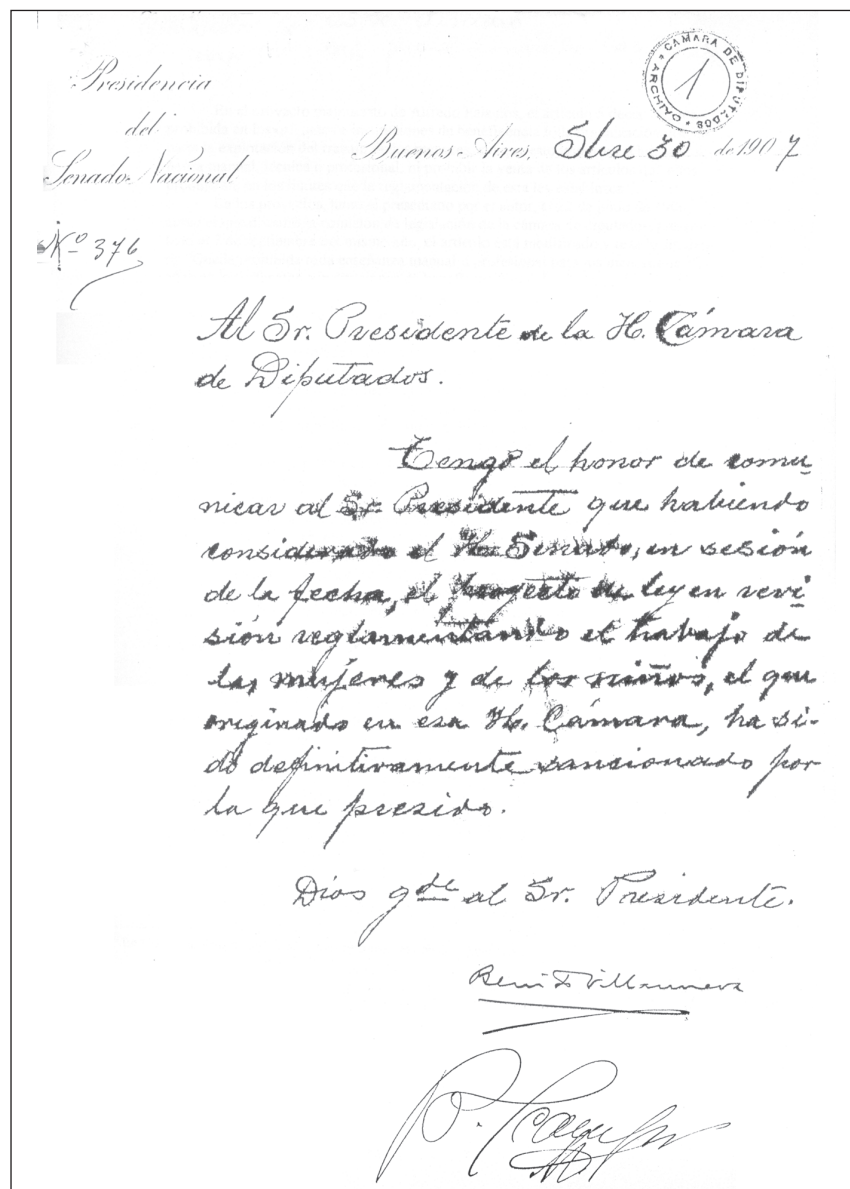 Presidencia
del
Senado Nacional
CAMARA DE DIPUTADOS
ARCHIVO
1
Buenos Aires, Sbre 30 de 1907
Nº 376
Al Sr. Presidente de la H. Cámara
de Diputados.
Tengo el honor de comu-
nicar al Sr. Presidente que habiendo
considerado el H. Senado, en sesión
de la fecha, el proyecto de ley en revi-
sión reglamentando el trabajo de
las mujeres y de los niños, el que
originado en esa H. Cámara, ha si-
do definitivamente sancionado por
la que presido.
Dios gde al Sr. Presidente.
Benito Villanueva